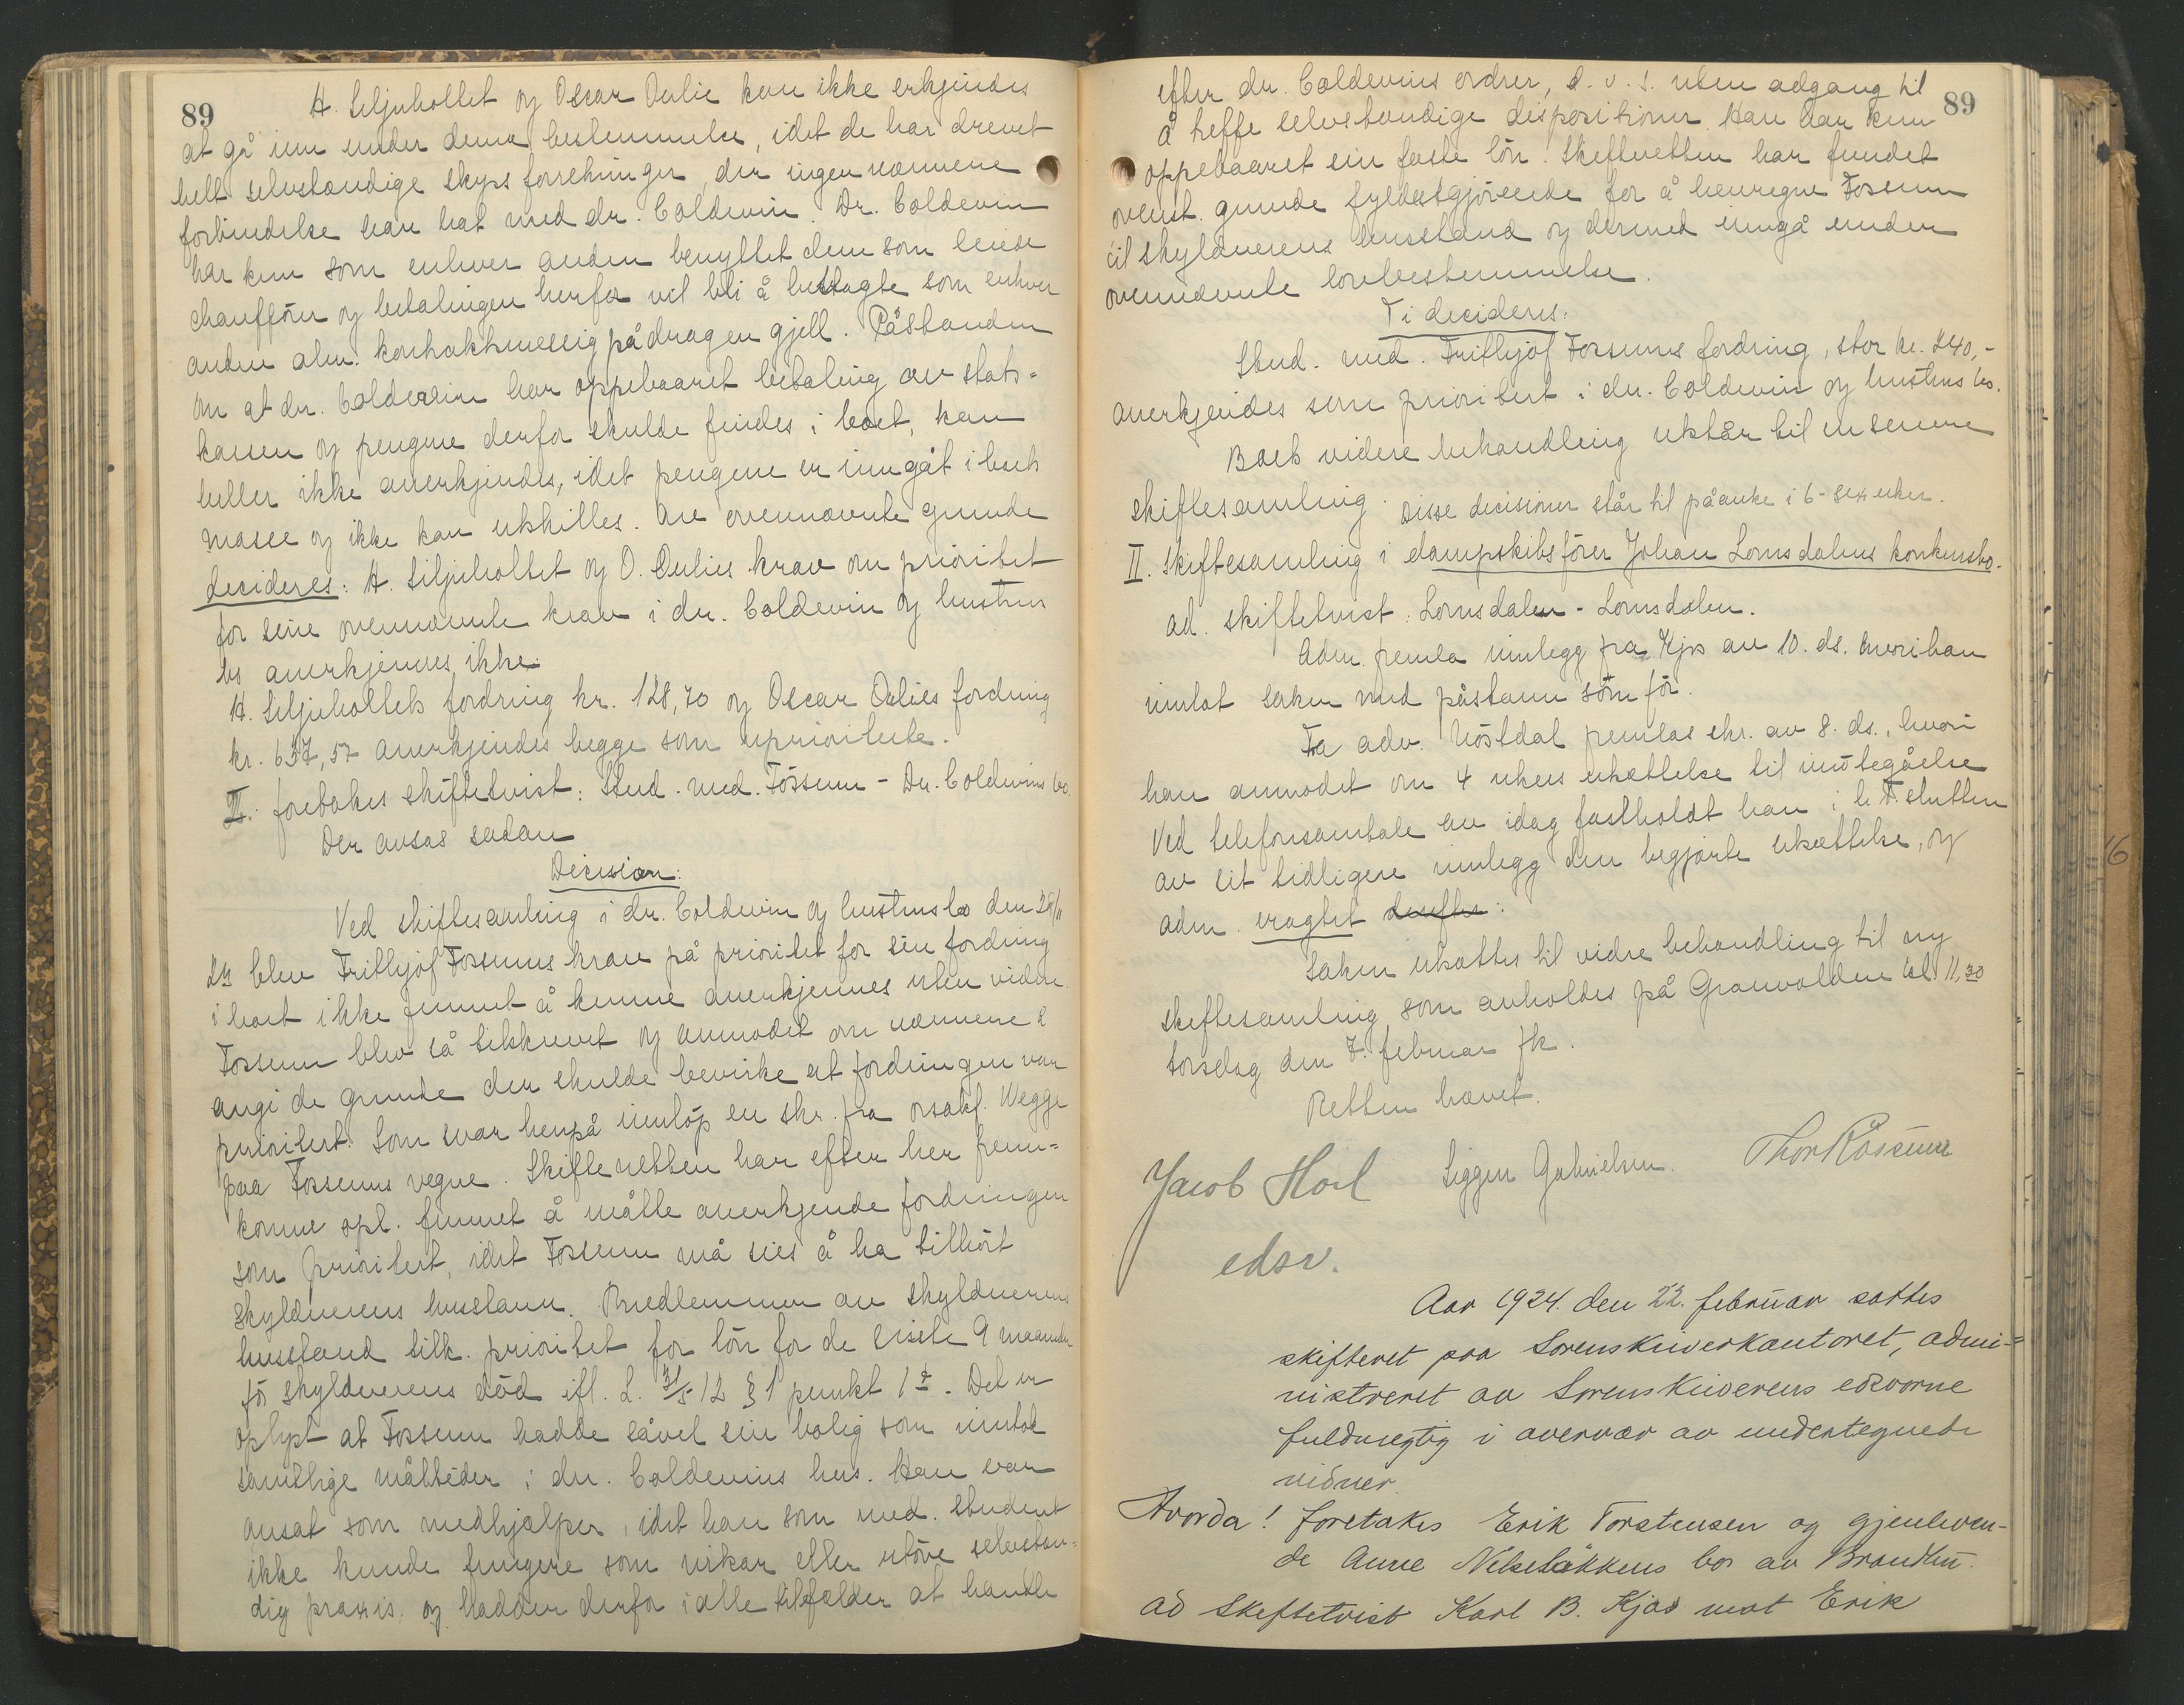 89
H. Siljuhollet og Oscar Oulie kan ikke erkjendes
at gå inn under denne bestemmelse, idet de har drevet
helt selvstændige skyssforretninger, der ingen nærmere
forbindelse har hat med dr. Coldevin. Dr. Coldevin
har kun som enhver anden benyttet dem som leiede
chauffører og betalingen herfor vil bli å betragte som enhver
anden alm. kontraktmessig pådragen gjell. Påstanden
om at dr. Coldevin har oppebaaret betaling av stats-
kassen og pengene derfor skulde findes i boet, kan
heller ikke anerkjendes, idet pengene er inngåt i boets
masse og ikke kan utskilles. Av ovennævnte grunde
decideres: H. Siljuhollet og O. Oulies krav om prioritet
for sine ovennævnte krav i dr. Coldevin og hustrus
bo anerkjennes ikke.
H. Siljuhollets fordring kr. 128,70 og Oscar Oulies fordring
kr. 637,57 anerkjendes begge som uprioriterte.
III. foretokes skiftetvist: Stud. med. Fossum - Dr. Coldevins bo.
Der avsas sådan
Decision:
Ved skiftesamling i dr. Coldevin og hustrus bo den 29/11
23 blev Frithjof Fossums krav på prioritet for sin fordring
i boet ikke funnet å kunne anerkjennes uten videre.
Fossum blev så tilskrevet og anmodet om nærmere å
angi de grunde der skulde bevirke at fordringen var
prioritert. Som svar herpå innløp en skr. fra orsakf. Wegge
paa Fossums vegne. Skifteretten har efter her frem-
komne opl. funnet å måtte anerkjende fordringen
som prioritert, idet Fossum må sies å ha tilhørt
skyldnerens husstann. Medlemmer av skyldnerens
husstand tilk. prioritet for lön for de siste 9 maaneder
før skyldnerens död ifl. L. 31/5-12 § 1 punkt 1. Det er
oplyst at Fossum hadde såvel sin bolig som inntok
samtlige måltider i dr. Coldevins hus. Han var
ansat som medhjælper, idet han som med. student
ikke kunde fungere som vikar eller utöve selvstæn-
dig praxis, og hadde derfor i alle tilfælder at handle
89
efter dr. Coldevins ordrer, d. v. s. uten adgang til
å treffe selvstændige dispositioner. Han har kun
oppebaaret sin faste lön. Skifteretten har fundet
ovenst. grunde fyldestgjörende for å henregne Fossum
til skyldnerens husstand og dermed inngå under
ovennævnte lovbestemmelse.
Ti decideres:
Stud. med. Frithjof Fossums fordring, stor kr. 240,-
anerkjendes som prioritert i dr. Coldevin og hustrus bo.
Boets videre behandling utstår til en senere
skiftesamling. Disse decisioner står til påanke i 6-sex uker.
II. Skiftesamling i dampskibsförer Johan Lomsdalens konkursbo.
ad. skiftetvist: Lomsdalen - Lomsdalen.
Adm. femla innlegg fra Kjos av 10. ds. hvori han
innlot saken med påstann som för.
Fra adv. Nöstdal femlas skr. av 8. ds., hvori
han anmodet om 4 ukers utsættelse til imötegåelse
Ved telefonsamtale av idag fastholdt han i h. t. slutten
av sit tidligere innlegg den begjærte utsættelse, og
adm. eragtet derfor:
Saken utsættes til vidre behandling til ny
skiftesamling som avholdes på Granvolden kl. 11,30
torsdag den 7. februar fk.
Retten hævet.
Jacob Hoel Sigger Gabrielsen. Thor Røssum
edsv.
Aar 1924. den 22. februar sattes
skifteret paa Sorenskriverkontoret, admi-
nistreret av Sorenskriverens edsvorne
fuldmegtig i overvær av undertegnede
vidner.
Hvorda! foretakes Erik Torstensen og gjenleven-
de Anne Nelseløkkens bo av Brandbu.
ad Skiftetvist Karl B. Kjos mot Erik
16